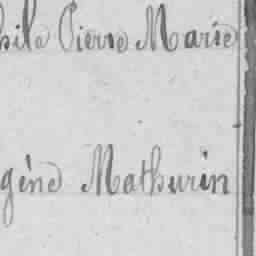 hile Pierre Marie
gène Mathurin